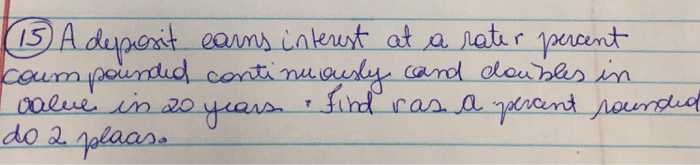 15 A deposit earns interest at a rate r percent
coumpounded continuously cand doubles in
value in 20 years. find r as a percent rounded
do 2 plaas.